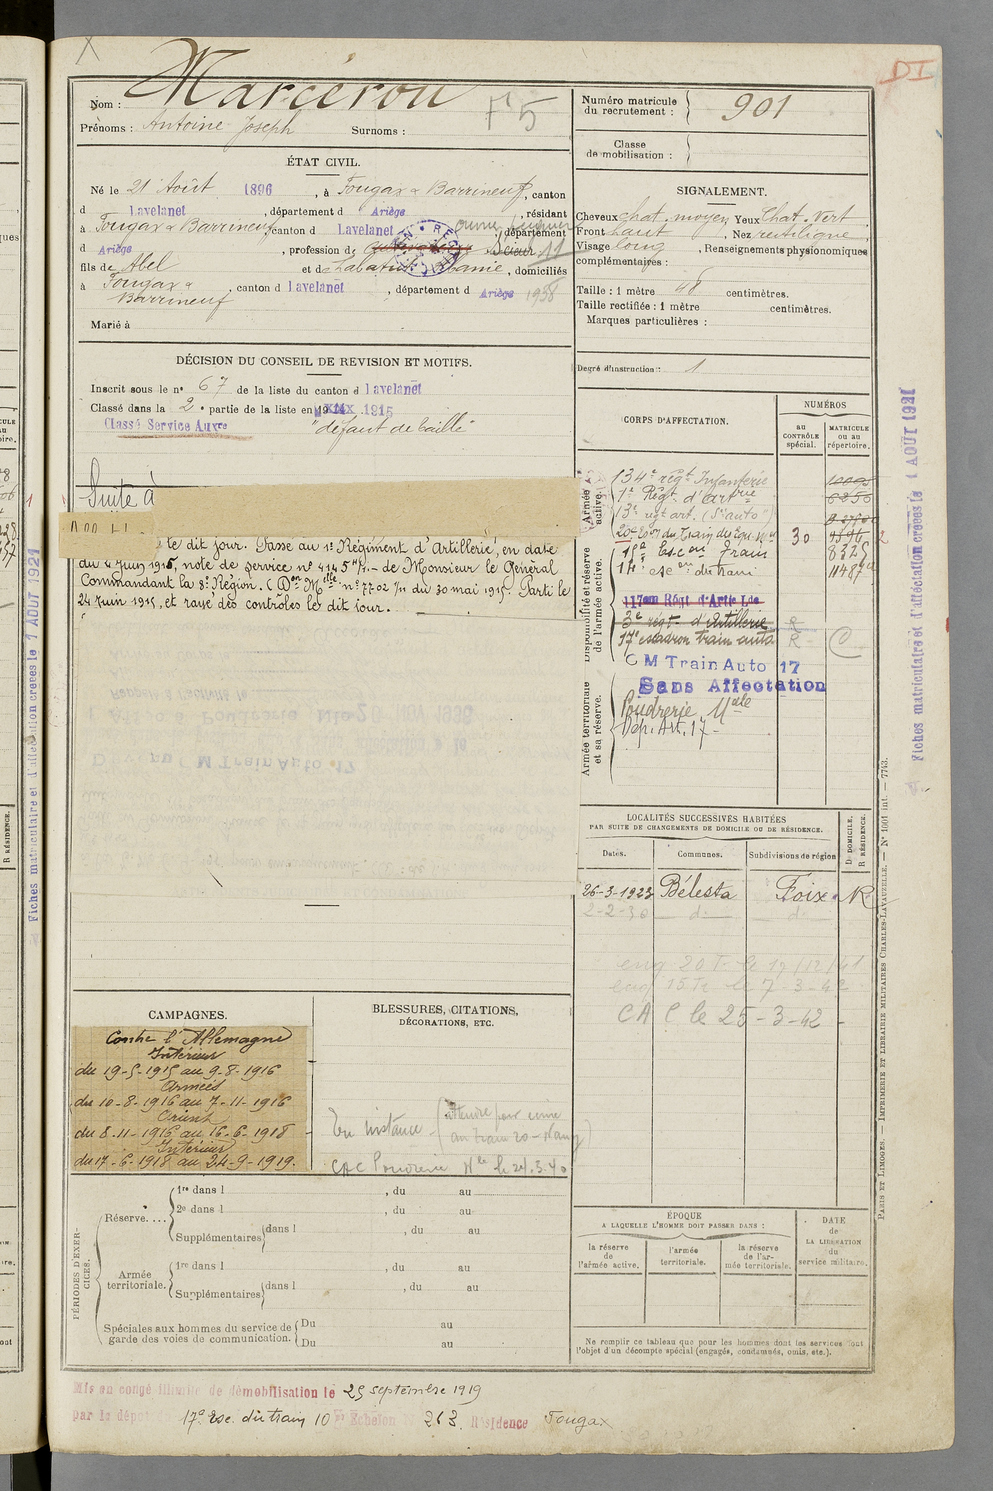 X
DI
Nom : Marcerou
F 5
Prénoms : Antoine Joseph Surnoms :
Numéro matricule
du recrutement : 901
Classe
de mobilisation :
ÉTAT CIVIL.
Né le 21 Août 1896, à Fougax & Barrineuf, canton
d Lavelanet, département d Ariège, résidant
à Fougax & Barrineuf, canton d Lavelanet, département
d Ariège, profession de Scieur
fils de Abel et de Sabatier, domiciliés
à Fougax &
Barrineuf, canton d Lavelanet, département d Ariège 1938
Marié à
SIGNALEMENT.
Cheveux chat. moyen Yeux Chat. Vert
Front haut, Nez rectiligne
Visage long, Renseignements physionomiques
complémentaires :
Taille : 1 mètre 68 centimètres.
Taille rectifiée : 1 mètre centimètres.
Marques particulières :
Degré d'instruction : 1
DÉCISION DU CONSEIL DE REVISION ET MOTIFS.
Inscrit sous le n° 67 de la liste du canton d Lavelanet
Classé dans la 2e partie de la liste en 1915
Classé Service Auxre "défaut de taille"
Suite à
le dit jour. Passé au 1r Régiment d'Artillerie, en date
du 4 juin 1915, note de service n° 4145 - de Monsieur le Général
Commandant la 8e Région. n° 7702 1/11 du 30 mai 1915. Parti le
24 Juin 1915, et rayé des contrôles le dit jour.
CORPS D'AFFECTATION.
NUMÉROS
au
CONTRÔLE
spécial.
MATRICULE
ou au
répertoire.
Armée
active.
134e régt Infanterie
1er Régt d'Artrie 6250
13e régt art. (S. auto)
20e Eson du Train des Equ. Mres 30 9596 2
15e Esc on Train 8325
14e esc on du train 11487
Disponibilité et réserve
de l'armée active.
117eme Régt d'Artie Lde
3e régt d'Artillerie R
17e escadron train auto R C
C M Train Auto 17
Sans Affectation
Armée territoriale
et sa réserve.
Poudrerie Nale
Dép. Art. 17
Fiches matriculaire et d'affectation créées le 1 AOUT 1921
LOCALITÉS SUCCESSIVES HABITÉES
PAR SUITE DE CHANGEMENTS DE DOMICILE OU DE RÉSIDENCE.
Dates. Communes. Subdivisions de région
D. DOMICILE.
R. RÉSIDENCE.
26-3-1923 Bélesta Foix R
2-2-30 d° d°
enq 20 T. le 12/12/41
enq 15 Tr le 7-3-42
CA C le 25-3-42
CAMPAGNES.
Contre l'Allemagne
Intérieur
du 19-5-1915 au 9-8-1916
Armées
du 10-8-1916 au 7-11-1916
Orient
du 8-11-1916 au 16-6-1918
Intérieur
du 17-6-1918 au 24-9-1919.
BLESSURES, CITATIONS,
DÉCORATIONS, ETC.
En instance
CAC Poudrerie Nle le 24.3.40
PÉRIODES D'EXERCICES.
Réserve....
1re dans l , du au
2e dans l , du au
Supplémentaires dans l , du au
Armée
territoriale.
1re dans l , du au
Supplémentaires dans l , du au
Spéciales aux hommes du service de
garde des voies de communication.
Du au
Du au
ÉPOQUE
A LAQUELLE L'HOMME DOIT PASSER DANS :
la réserve
de
l'armée active.
l'armée
territoriale.
la réserve
de l'armée territoriale.
DATE
de
LA LIBÉRATION
du
service militaire.
Ne remplir ce tableau que pour les hommes dont les services font
l'objet d'un décompte spécial (engagés, condamnés, omis, etc.).
PARIS ET LIMOGES. — IMPRIMERIE ET LIBRAIRIE MILITAIRES CHARLES-LAVAUZELLE. — N° 1001 int. — 7743.
Mis en congé illimité de démobilisation le 25 septembre 1919
par le dépôt 17e Esc. du train 10e Echelon N° 263 Résidence Fougax